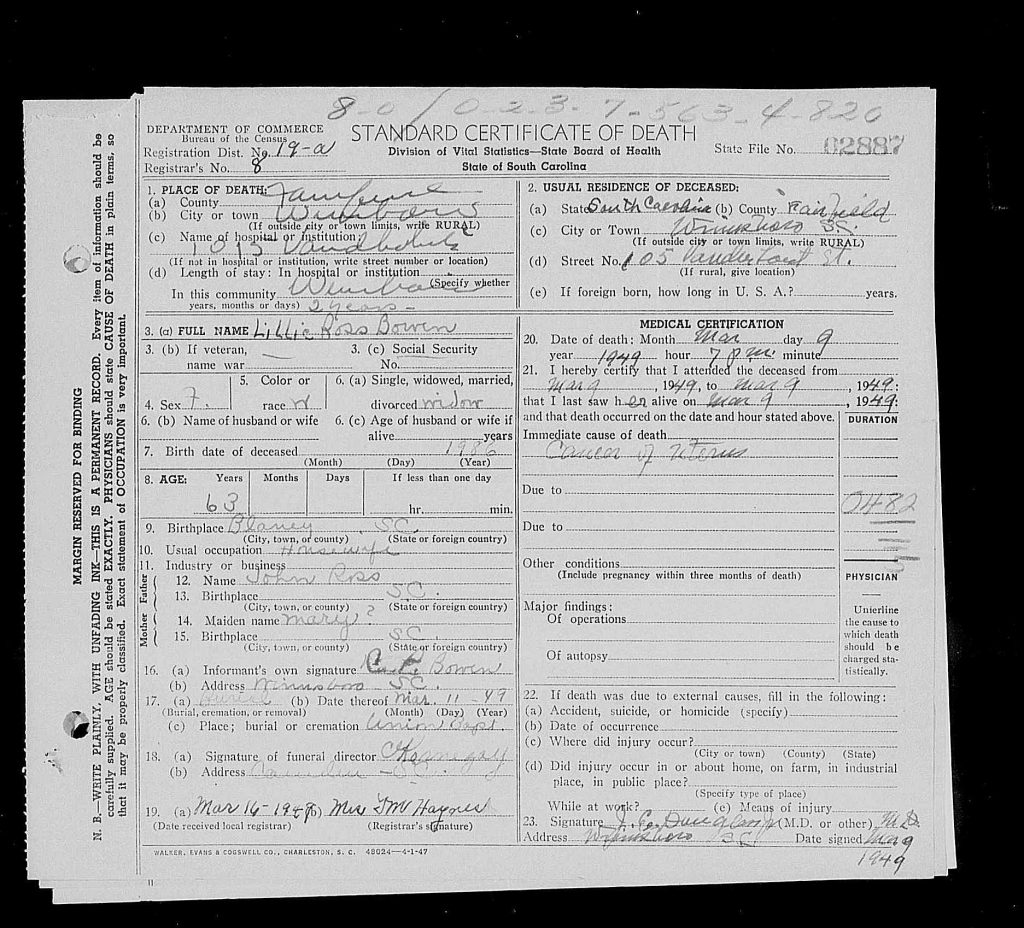 8-0/0-2-3-7-563-4-826
DEPARTMENT OF COMMERCE
Bureau of the Census
STANDARD CERTIFICATE OF DEATH
Division of Vital Statistics—State Board of Health
State of South Carolina
Registration Dist. No. 19-a
Registrar's No. 8
State File No. 02887
1. PLACE OF DEATH:
(a) County
(b) City or town
(If outside city or town limits, write RURAL)
(c) Name of hospital or institution:
(If not in hospital or institution, write street number or location)
(d) Length of stay: In hospital or institution
(Specify whether
In this community
years, months or days) 2 years -
2. USUAL RESIDENCE OF DECEASED:
(a) State South Carolina (b) County Fairfield
(c) City or Town Winnsboro S.C.
(If outside city or town limits, write RURAL)
(d) Street No. 105 St.
(If rural, give location)
(e) If foreign born, how long in U. S. A.? years.
3. (a) FULL NAME Lillie Ross Bowen
3. (b) If veteran, name war —
3. (c) Social Security No.
4. Sex F.
5. Color or race W
6. (a) Single, widowed, married, divorced widow
6. (b) Name of husband or wife
6. (c) Age of husband or wife if alive years
7. Birth date of deceased 1986
(Month) (Day) (Year)
8. AGE: Years Months Days If less than one day
63 hr. min.
9. Birthplace Blaney S.C.
(City, town, or county) (State or foreign country)
10. Usual occupation Housewife
11. Industry or business
Father
12. Name John Ross
13. Birthplace S.C.
(City, town, or county) (State or foreign country)
Mother
14. Maiden name Mary ?
15. Birthplace S.C.
(City, town, or county) (State or foreign country)
16. (a) Informant's own signature Bowen
(b) Address Winnsboro S.C.
17. (a) Burial (b) Date thereof Mar. 11 - 49
(Burial, cremation, or removal) (Month) (Day) (Year)
(c) Place; burial or cremation Union Bapt.
18. (a) Signature of funeral director
(b) Address Camden - S.C.
19. (a) Mar 16-1949 (b) Mrs Haynes
(Date received local registrar) (Registrar's signature)
MEDICAL CERTIFICATION
20. Date of death: Month Mar day 9
year 1949 hour 7 p.m. minute
21. I hereby certify that I attended the deceased from
Mar 9, 1949, to Mar 9, 1949:
that I last saw her alive on Mar 9, 1949:
and that death occurred on the date and hour stated above.
DURATION
Immediate cause of death
Cancer of Uterus
Due to
0482
Due to
Other conditions
(Include pregnancy within three months of death)
PHYSICIAN
Major findings:
Of operations
Of autopsy
Underline
the cause to
which death
should be
charged sta-
tistically.
22. If death was due to external causes, fill in the following:
(a) Accident, suicide, or homicide (specify)
(b) Date of occurrence
(c) Where did injury occur?
(City or town) (County) (State)
(d) Did injury occur in or about home, on farm, in industrial
place, in public place?
(Specify type of place)
While at work? (e) Means of injury
23. Signature (M.D. or other) M.D.
Address Winnsboro S.C. Date signed Mar 9
1949
WALKER, EVANS & COGSWELL CO., CHARLESTON, S. C. 48024—4-1-47
11
MARGIN RESERVED FOR BINDING
N. B.—WRITE PLAINLY, WITH UNFADING INK—THIS IS A PERMANENT RECORD. Every item of information should be
carefully supplied. AGE should be stated EXACTLY. PHYSICIANS should state CAUSE OF DEATH in plain terms, so
that it may be properly classified. Exact statement of OCCUPATION is very important.